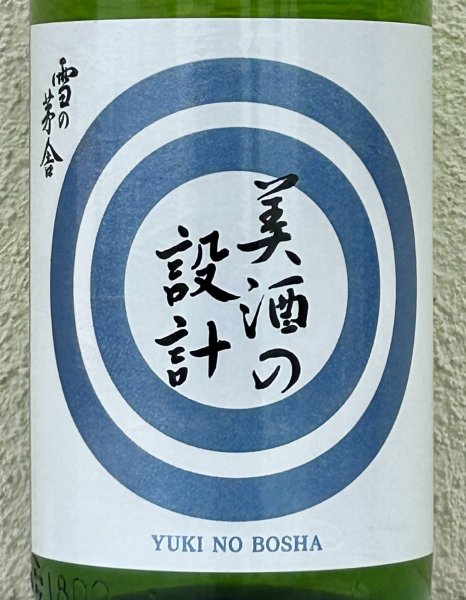 雪の茅舎
美酒の
設計
YUKI NO BOSHA
1800